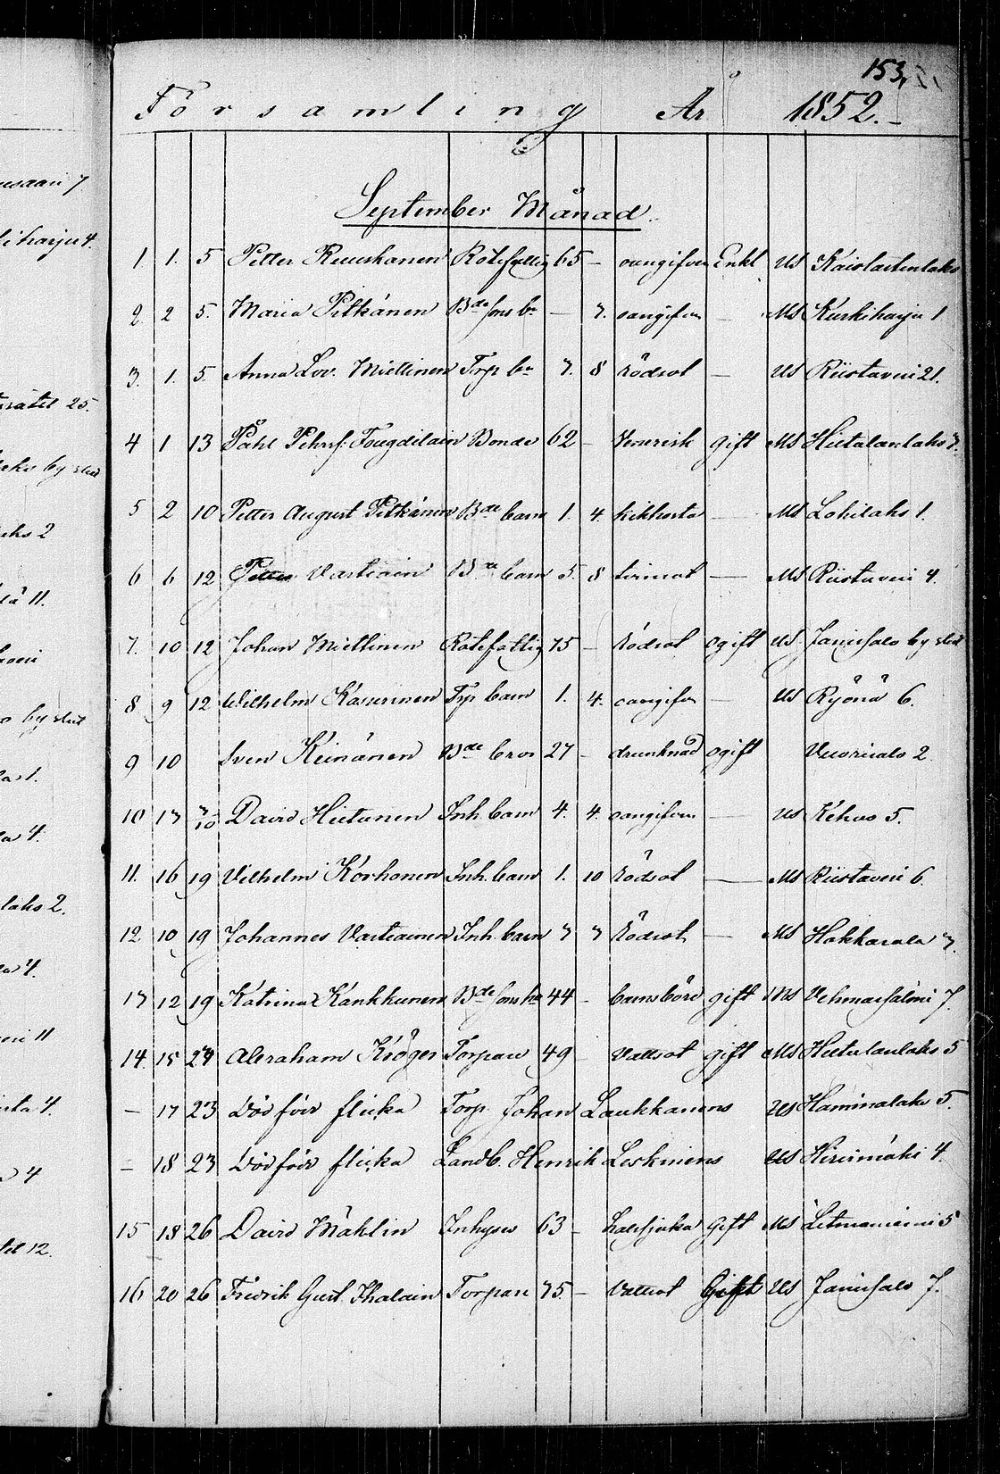 usaari 7
iharju 4.
25.
by slut
2
11.
by slut
4.
laks 2.
4.
11
4.
4
12.
153,
Församling År 1852.
September Månad.
1. 1. 5 Petter Ruuskanen Rotefattig 65 – oangifven Enkl. US Kaislastenlaks
2. 2 5. Maria Pitkänen Bde sons br – 7. oangifven – MS Kurkiharju 1
3. 1. 5. Anna Lov. Miettinen Torp br 7. 8 Rödsot – US Riistaveri 21.
4 1 13 Påhl Pehrs. Fougdilain Bonde 62 – Venerisk gift MS Hietalanlaks 7.
5 2 10 Petter August Pitkänen Bde barn 1. 4. kikhosta – MS Lohilaks 1.
6 6 12 Petter Vartiain Bde barn 5. 8 – MS Riistaveri 4.
7. 10 12 Johan Miettinen Rotefattig 75 – Rödsot ogift US Jänissalo by slut
8 9 12 Wilhelm Kasurinen Trp barn 1. 4. oangifv – US Ryönä 6.
9 10 Sven Keinänen Bde bror 27 – drunknad ogift Vuorisalo 2
10 17 David Hietanen Inh barn 4. 4. oangifven – US Kehvo 5.
11. 16 19 Vilhelm Korhonen Inh. barn 1. 10 Rödsot – MS Riistaveri 6.
12. 10 19 Johannes Vartiainen Inh. barn 7 7 Rödsot – MS Hakkarala 7.
13 12 19 Katrina Kankkunen Bde sons hu 44 – barnsbörd gift MS Vehmassalmi 7.
14. 15 24 Abraham Kröger Torpare 49 – Vattsot gift MS Hietalanlaks 5
– 17 23 Dödföd flicka Torp. Johan Laukkanens US Haminalaks 5.
– 18 23 Dödföd flicka Landb. Henrik Leskinens US Hirvimäki 4.
15 18 26 David Mähklin Inhyses 63 – gift MS Litmaniemi 5
16 20 26 Fredrik Gust. Ihalain Torpare 75 – Vattsot Gift US Jänissalo 7.